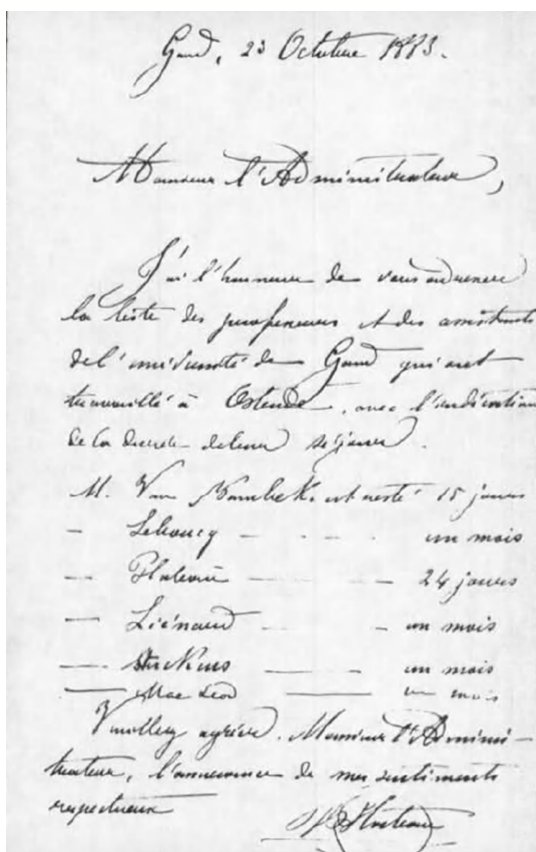 Gand, 23 Octobre 1883.
Monsieur l'Administrateur,
J'ai l'honneur de vous adresser
la liste des professeurs et des assistants
de l'université de Gand qui ont
travaillé à Ostende, avec l'indication
de la durée de leur séjour.
M. Van Bambeke est resté 15 jours
— Leboucq — — — un mois
— Plateau — — — 24 jours
— Liénard — — un mois
— — — un mois
— Mac Leod — un mois
Veuillez agréer, Monsieur l'Adminis-
trateur, l'assurance de mes sentiments
respectueux
Plateau